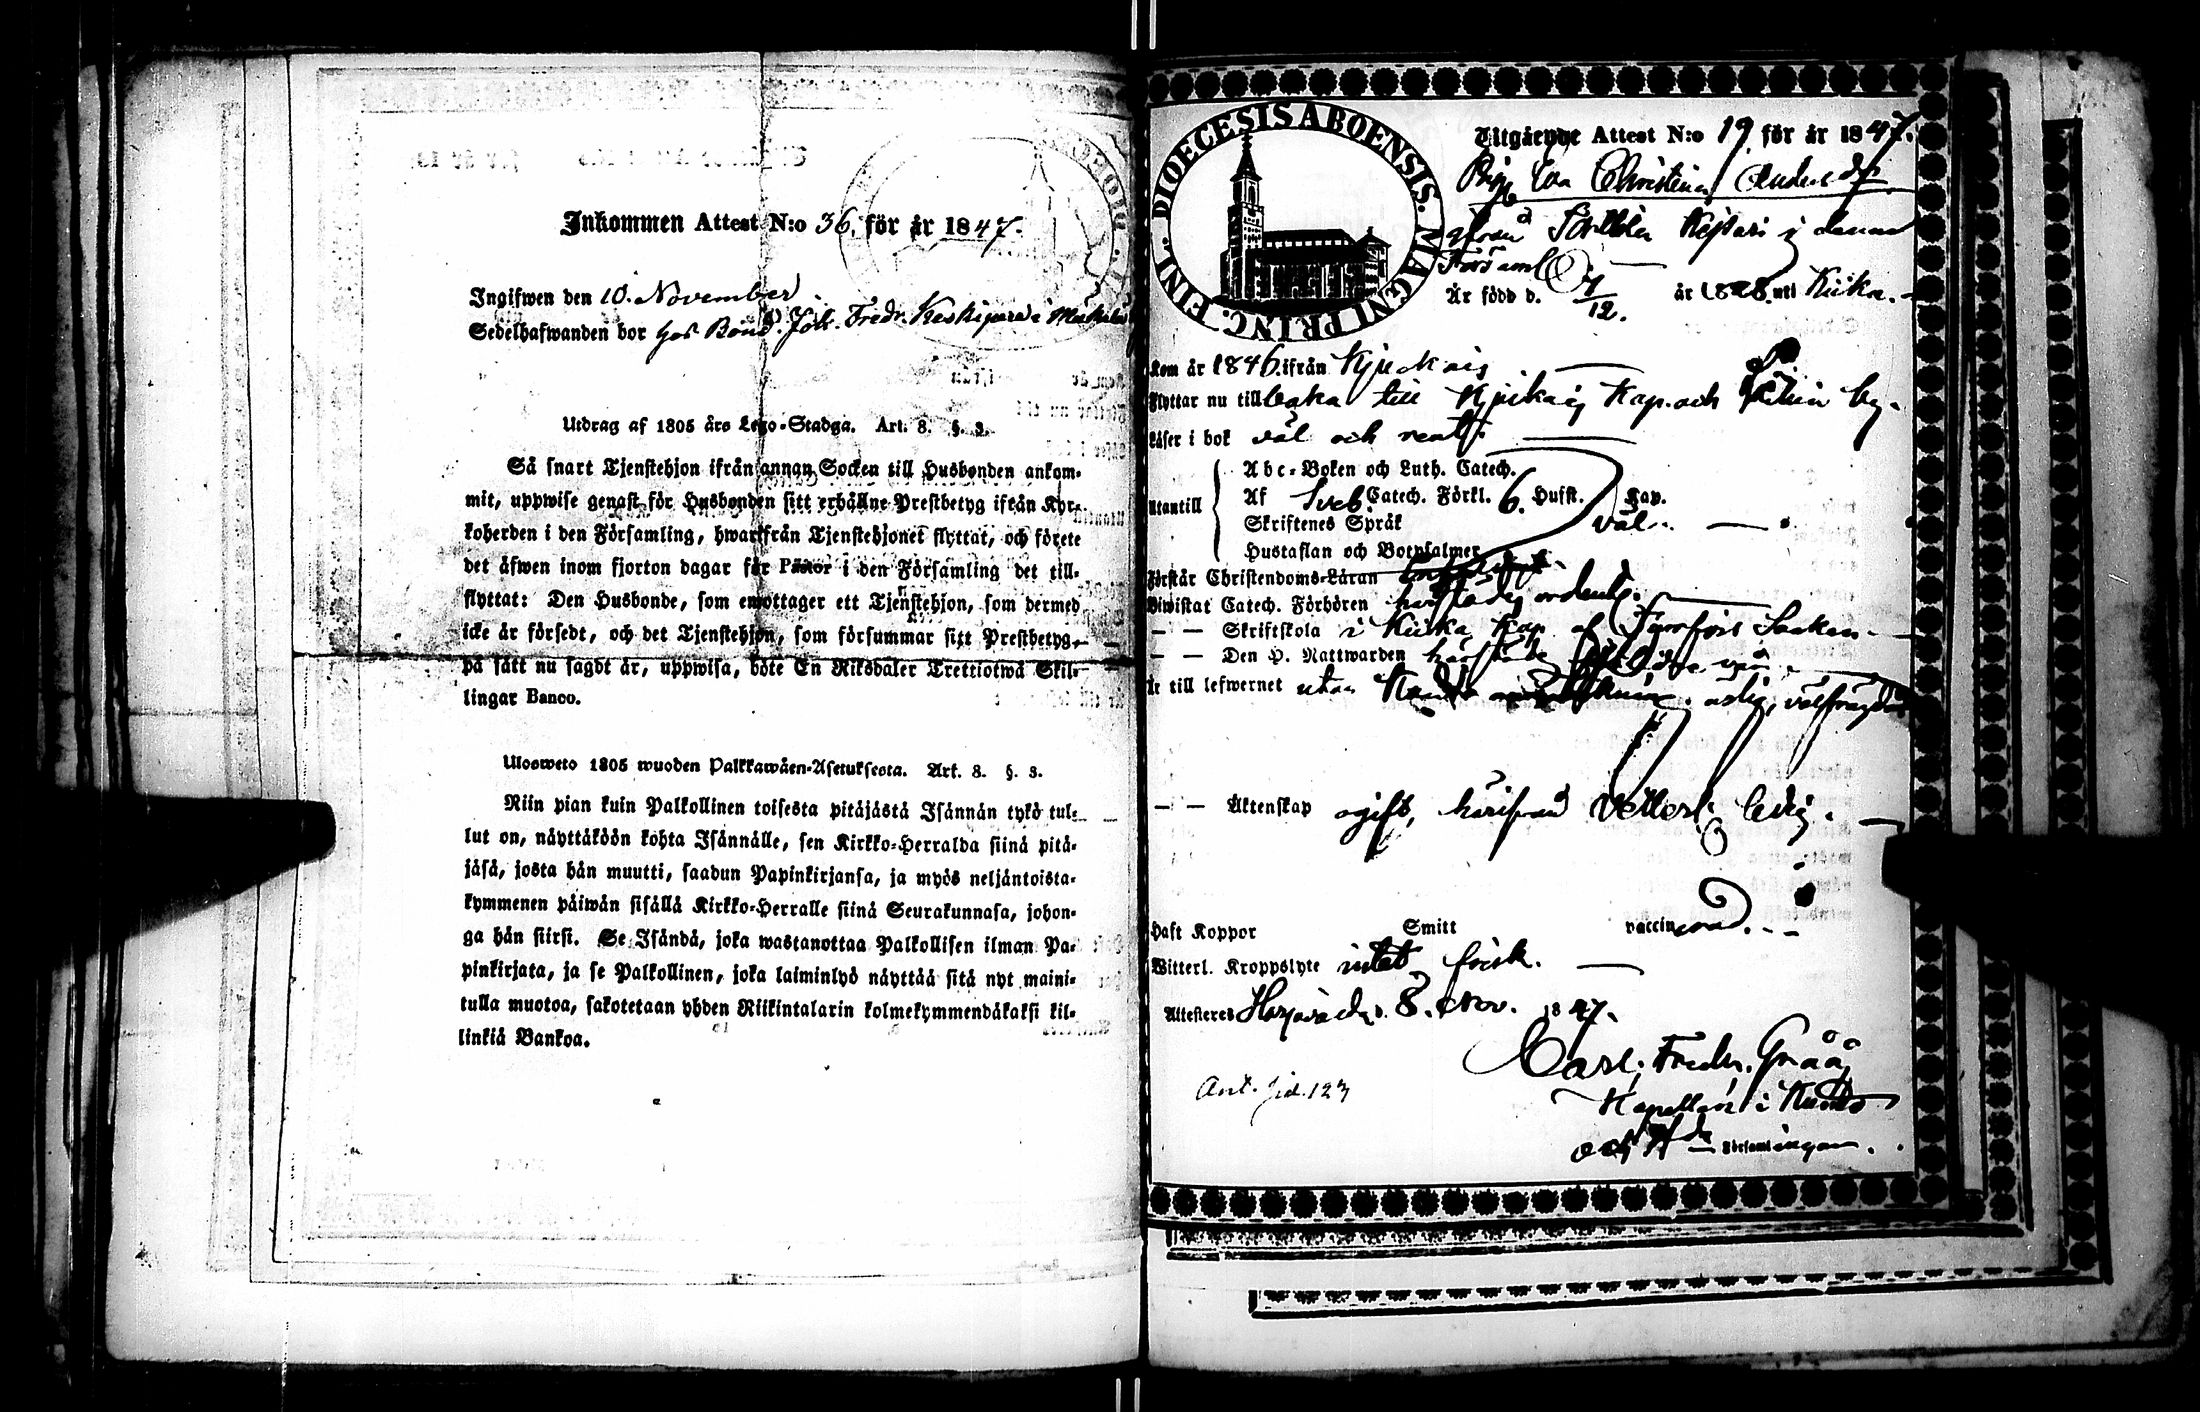 Inkommen Attest N:o 36. för år 1847.
Ingifwen den 10. November
Sedelhafwanden bor hos Bond. Joh. Fredr. Keskipere i
Utdrag af 1805 års Lego-Stadga. Art. 8. §. 3.
Så snart Tjenstehjon ifrån annan Socken till Husbonden ankom-
mit, uppwise genast för Husbonden sitt erhållne Prestbetyg ifrån Kyr-
koherden i den Församling, hwarifrån Tjenstehjonet flyttat, och förete
det äfwen inom fjorton dagar för Pastor i den Församling det till-
flyttat: Den Husbonde, som emottager ett Tjenstehjon, som dermed
icke är försedt, och det Tjenstehjon, som försummar sitt Prestbetyg,
på sätt nu sagdt är, uppwisa, böte En Riksdaler Trettiotwå Skil-
lingar Banco.
Ulosweto 1805 wuoden Palkkawäen-Asetuksesta. Art. 8. §. 3.
Niin pian kuin Palkollinen toisesta pitäjästä Isännän tykö tul-
lut on, näyttäköön kohta Isännälle, sen Kirkko-Herralda siinä pitä-
jäsä, josta hän muutti, saadun Papinkirjansa, ja myös neljäntoista-
kymmenen päiwän sisällä Kirkko-Herralle siinä Seurakunnasa, johon-
ga hän siirsi. Se Isändä, joka wastanottaa Palkollisen ilman Pa-
pinkirjata, ja se Palkollinen, joka laiminlyö näyttää sitä nyt maini-
tulla muotoa, sakotetaan yhden Riikintalarin kolmekymmendäkaksi kil-
linkiä Bankoa.
DIOECESIS ABOENSIS. MAGNI PRINC. FINL.
Utgående Attest N:o 19. för år 1847.
Pig. Eva Christina Anders d:r
ifrån i denna
Församl.
Är född d. 7/12. år 1828. uti Kiuka.
Kom år 1846. ifrån Kjukais
Flyttar nu tillbaka till Kjukais Kap. och by.
Läser i bok väl och rent.
Utantill
Abc-Boken och Luth. Catech.
Af Sveb. Catech. Förkl. 6. Hufst. Kap.
Skriftenes Språk väl.
Hustaflan och Botpsalmer
Förstår Christendoms-Läran
Biwistat Catech. Förhören härstädes ordentl.
— — Skriftskola i Kiuka Kap.
— — Den H. Nattwarden härstädes
Är till lefwernet utan ärlig, välfrägdad
— — Äktenskap ogift, härifrån Vetterl. ledig.
Haft Koppor Smitt vaccinerad.
Witterl. Kroppslyte intet, frisk.
Attesteres Harjavalda d. 8. Nov. 1847.
Carl Fredr. Gråå
Kapellan i
och H:da Församlingar.
Ant. sid. 123